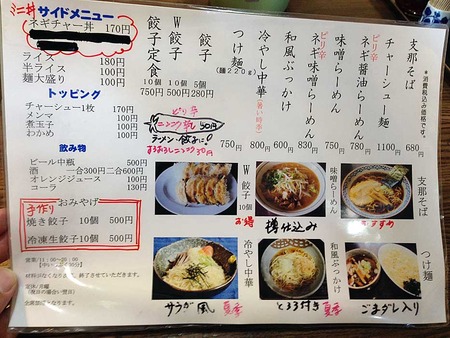 ミニ丼 サイドメニュー
ネギチャー丼 170円
ライス 180円
半ライス 100円
麺大盛り 100円
トッピング
チャーシュー1枚 170円
メンマ 100円
煮玉子 100円
わかめ 100円
飲み物
ビール中瓶 500円
酒 一合300円 二合600円
オレンジジュース 100円
コーラ 130円
おみやげ
手作り
焼き餃子 10個 500円
冷凍生餃子10個 500円
材料がなくなりましたら、終了させていただきます。
*消費税込み価格です。
支那そば 680円
チャーシュー麺
ピリ辛
ネギ醤油らーめん
味噌らーめん
ピリ辛
ネギ味噌らーめん
和風ぶっかけ
冷やし中華(暑い時季)
つけ麺(麺220g) 750円
餃子 5個 280円
W餃子 10個 500円
餃子定食 10個 750円
ピリ辛
50円
ラーメン、餃子に!
おろしニンニク 30円
支那そば
おすすめ
味噌らーめん
樽仕込み
W餃子
10個
お得
つけ麺
ごまダレ入り
和風ぶっかけ
とろろ付き 夏季
冷やし中華
サラダ風 夏季